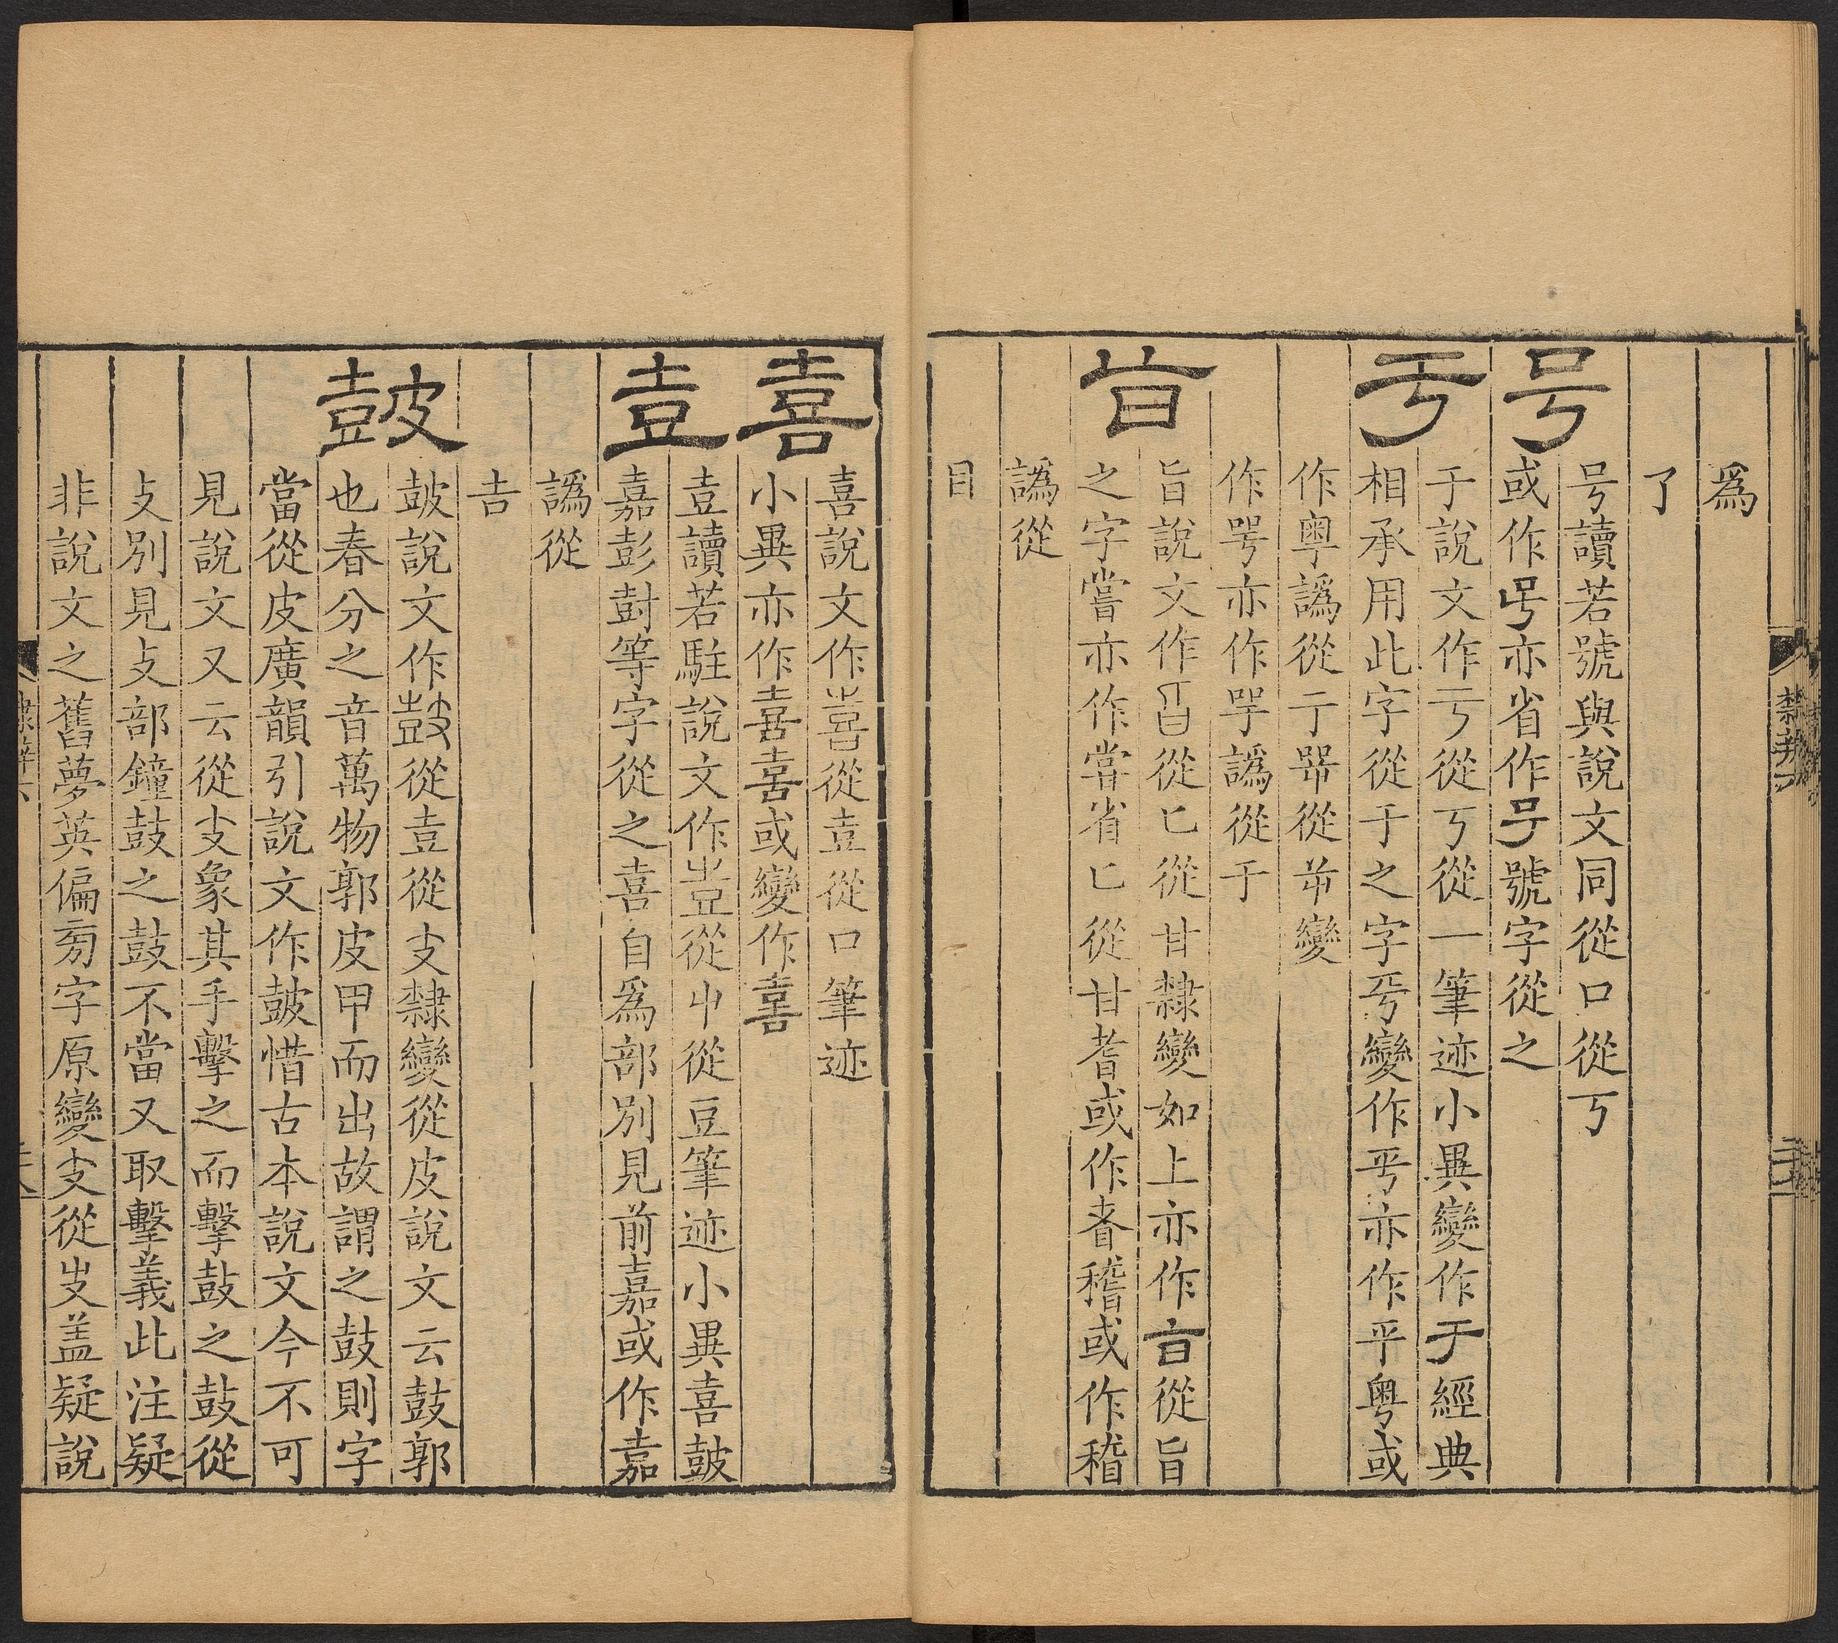 爲
了
号
号讀若號與說文同從口從丂
或作号亦省作号號字從之
亏
于說文作亏從丂從一筆迹小異變作于經典
相承用此字從于之字丂變作乎亦作平粵或
作粤譌從亍咢從屰變
作咢亦作咢譌從于
旨
旨說文作㫖從匕從甘隸變如上亦作旨從旨
之字嘗亦作甞省匕從甘耆或作耆稽或作稽
譌從
目
喜
喜說文作喜從壴從口筆迹
小異亦作喜喜或變作喜
壴
壴讀若駐說文作壴從屮從豆筆迹小異喜皷
嘉彭尌等字從之喜自爲部別見前嘉或作嘉
譌從
吉
皷
皷說文作鼓從壴從支隸變從皮說文云鼓郭
也春分之音萬物郭皮甲而出故謂之鼓則字
當從皮廣韻引說文作皷惜古本說文今不可
見說文又云從支象其手擊之而擊鼓之鼓從
攴別見攴部鐘鼓之鼓不當又取擊義此注疑
非說文之舊夢英偏旁字原變支從𠬢盖疑說